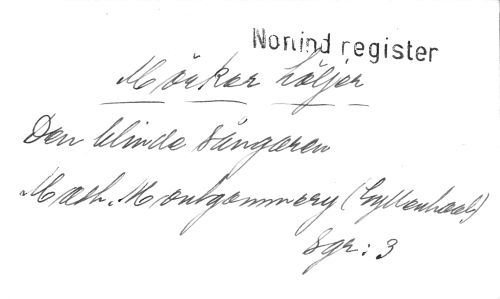 Nonind register
Mörker höljer
Den blinde sångaren
Math. Montgommery (Gyllenhaal)
Sgr: 3